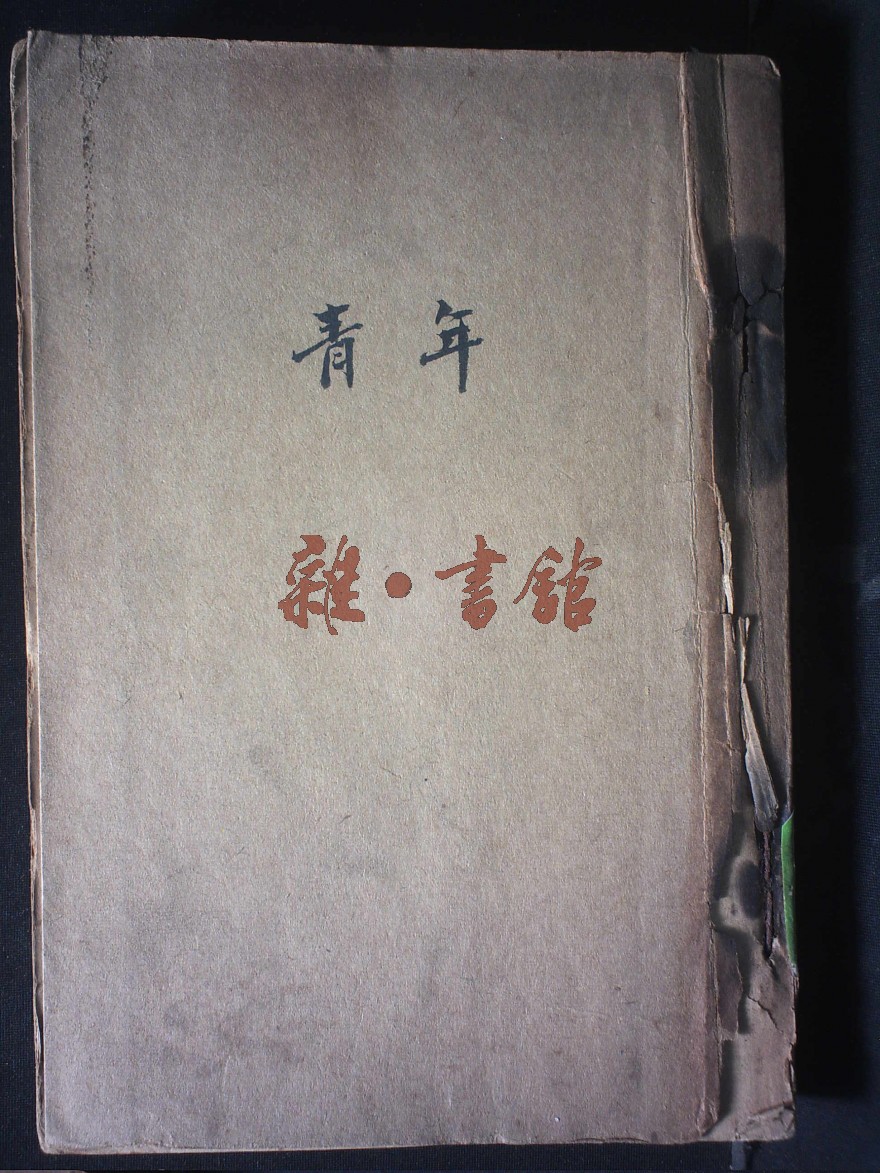 青年
雜·書館